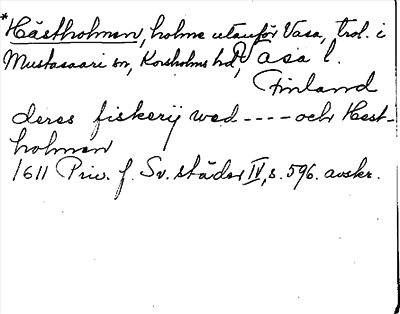 *Hästholmen, holme utanför Vasa, trol. i
Mustasaari sn, Korsholms hd, Vasa l.
Finland
deres fiskerij wed ---- och Hest-
holmen
1611 Priv. f. Sv. städer IV, s. 596. avskr.